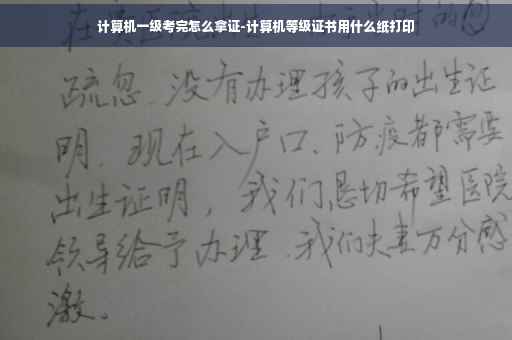 计算机一级考完怎么拿证-计算机等级证书用什么纸打印
疏忽、没有办理孩子的出生证
明、现在入户口、防疫都需要
出生证明，我们恳切希望医院
领导给予办理、我们夫妻万分感
激。